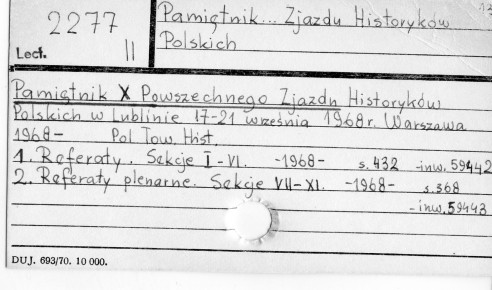 2277
Lect. II
Pamiętnik... Zjazdu Historyków
Polskich
Pamiętnik X Powszechnego Zjazdu Historyków
Polskich w Lublinie 17-21 września 1968r. Warszawa
1968- Pol Tow. Hist
1. Referaty. Sekcje I-VI. -1968- s.432 -inw. 59442
2. Referaty plenarne. Sekcje VII-XI. -1968- s.368
-inw. 59443
DUJ. 693/70. 10 000.